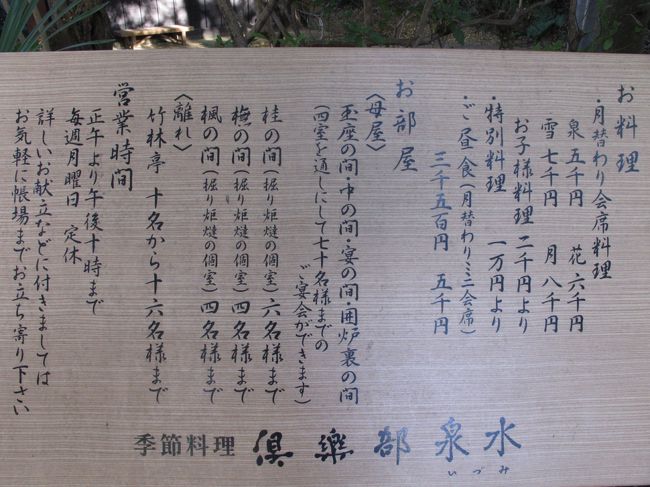 お料理
・月替わり会席料理
泉 五千円 花 六千円
雪 七千円 月 八千円
お子様料理 二千円より
・特別料理 一万円より
・ご昼食(月替わりミニ会席)
三千五百円 五千円
お部屋
〈母屋〉
玉座の間・中の間・宴の間・囲炉裏の間
(四室を通しにして七十名様までの
ご宴会ができます)
桂の間(掘り炬燵の個室)六名様まで
梅の間(掘り炬燵の個室)四名様まで
楓の間(掘り炬燵の個室)四名様まで
〈離れ〉
竹林亭 十名から十六名様まで
営業時間
正午より午後十時まで
毎週月曜日 定休
詳しいお献立などに付きましては
お気軽に帳場までお立ち寄り下さい
季節料理 倶樂部 泉水
いづみ